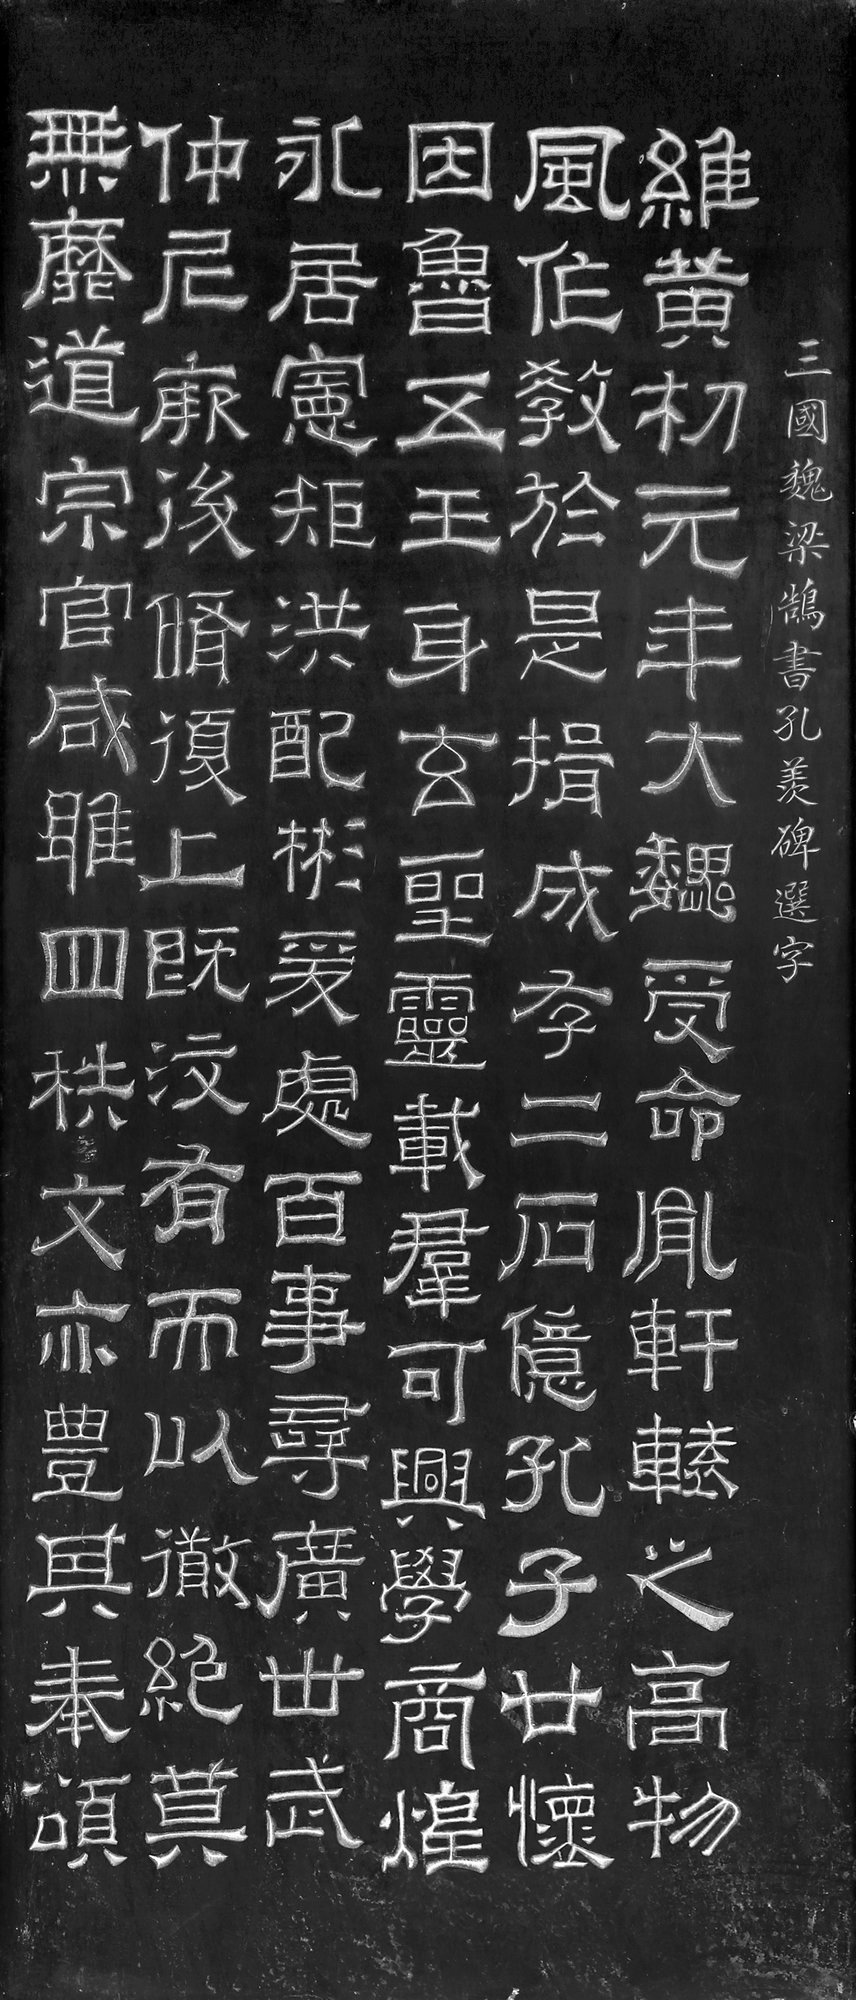 三國魏梁鵠書孔羨碑選字
維黃初元年大魏受命胤軒轅之高物
風作教於是揖成存二石億孔子廿懷
因魯五王身玄聖靈載羣可興學商煌
永居憲矩洪配彬爰處百事尋廣世武
仲尼後脩復上既汶有而以徹絕莫
無靡道宗官咸雎四秩文亦豐其奉頌